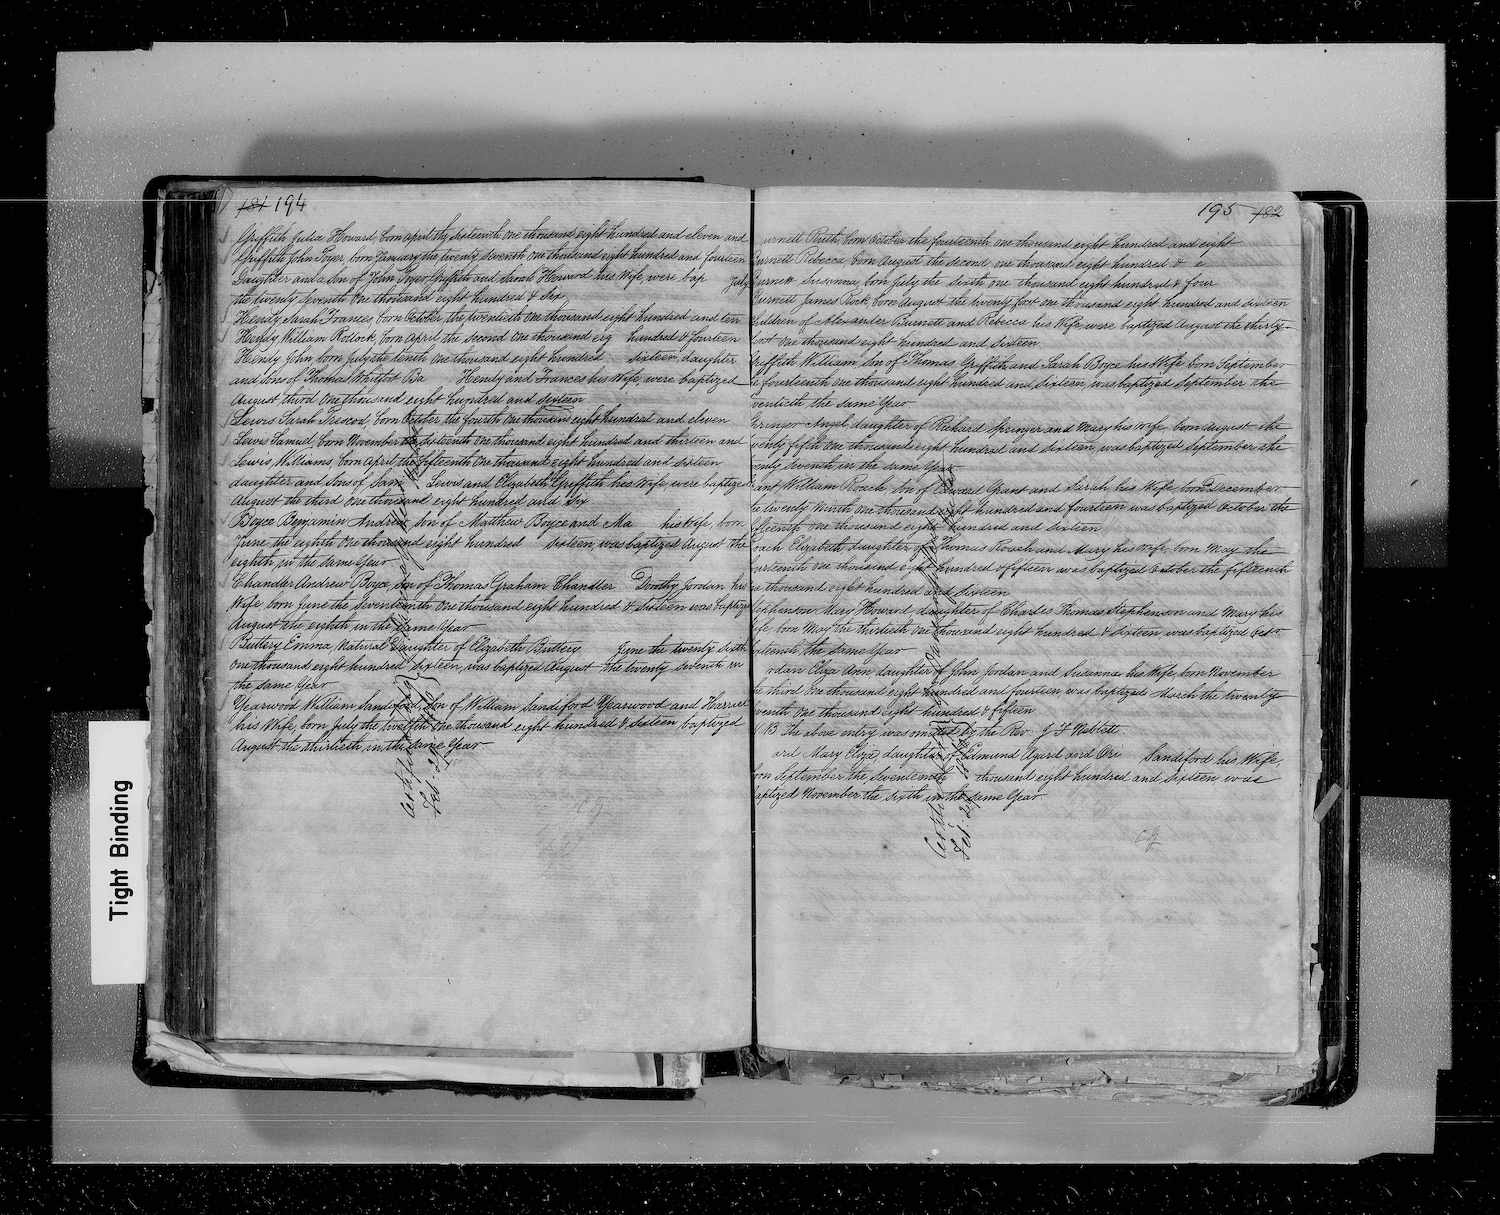 181 194
Griffith Julia Howard, born April the sixteenth one thousand eight hundred and eleven and
Griffith John Poyer, born January the twenty seventh one thousand eight hundred and fourteen
Daughter and a son of John Poyer Griffith and Sarah Howard his Wife, were bap July
the twenty seventh one thousand eight hundred & Six
Hendy Sarah Frances, born October the twentieth one thousand eight hundred and ten
Hendy William Rollock, born April the second one thousand eig hundred & fourteen
Hendy John born July the tenth one thousand eight hundred sixteen, daughter
and sons of Thomas Ba Hendy and Frances his Wife, were baptized
August third One thousand eight hundred and sixteen
Lewis Sarah Trescod, born October the fourth one thousand eight hundred and eleven
Lewis Samuel, born November the sixteenth one thousand eight hundred and thirteen and
Lewis, Williams, born April the fifteenth one thousand eight hundred and sixteen
daughter and Sons of Sam Lewis and Elizabeth Griffith his Wife were baptized
August the third one thousand eight hundred and Six
Boyce Benjamin Andrew, son of Matthew Boyce and Ma his Wife, born
June the eighth One thousand eight hundred sixteen, was baptized August the
eighth, in the same Year
Chandler Andrew Boyce, son of Thomas Graham Chandler Dorothy Jordan his
Wife, born June the seventeenth one thousand eight hundred & sixteen was baptize
August the eighth in the same Year
Buttery Emma, Natural Daughter of Elizabeth Buttery June the twenty sixth
One thousand eight hundred sixteen, was baptized August the twenty seventh in
the same Year
Yearwood William Sandiford, Son of William Sandiford Yearwood and Harriet
his Wife, born July the twelfth One thousand eight hundred & sixteen baptized
August the thirtieth, in the same Year
Feb. 2
195 182
urnett Ruth, born October the fourteenth one thousand eight hundred and eight
Burnett Rebecca born August the second one thousand eight hundred & e
Burnett Susanna, born July the sixth one thousand eight hundred & four
Burnett James Rock, born August the twenty first one thousand eight hundred and sixteen
hildren of Alexander Burnett and Rebecca his Wife were baptized August the thirty-
first one thousand eight hundred and sixteen
Griffith William, Son of Thomas Griffith and Sarah Boyce his Wife born September
e fourteenth one thousand eight hundred and sixteen, was baptized September the
wentieth the same Year
Springer Angel, daughter of Richard Springer and Mary his Wife born August the
wenty fifth one thousand eight hundred and sixteen, was baptized September the
wenty seventh in the same Year
rant William Roach Son of Edward Grant and Sarah his Wife, born December
he twenty ninth one thousand eight hundred and fourteen was baptized October the
fifteenth one thousand eight hundred and sixteen
oach Elizabeth daughter of Thomas Roach and Mary his Wife, born May the
ourteenth one thousand eight hundred & fifteen was baptized October the fifteenth
ne thousand eight hundred and sixteen
tephenson Mary Howard daughter of Charles Thomas Stephenson and Mary his
ife born May the thirtieth one thousand eight hundred & sixteen was baptized Oct
ixteenth the same Year
ordan Eliza Ann daughter of John Jordan and Susanna his Wife, born November
he third one thousand eight hundred and fourteen was baptized March the twenty
eventh one thousand eight hundred & fifteen
NB The above entry was omitted by the Rev J F Neblett
ard Mary Eliza, daughter of Edmund Agard and Pri Sandiford his Wife,
born September the seventeenth thousand eight hundred and sixteen was
baptized November the sixth in the same Year
Feb. 2
Tight Binding